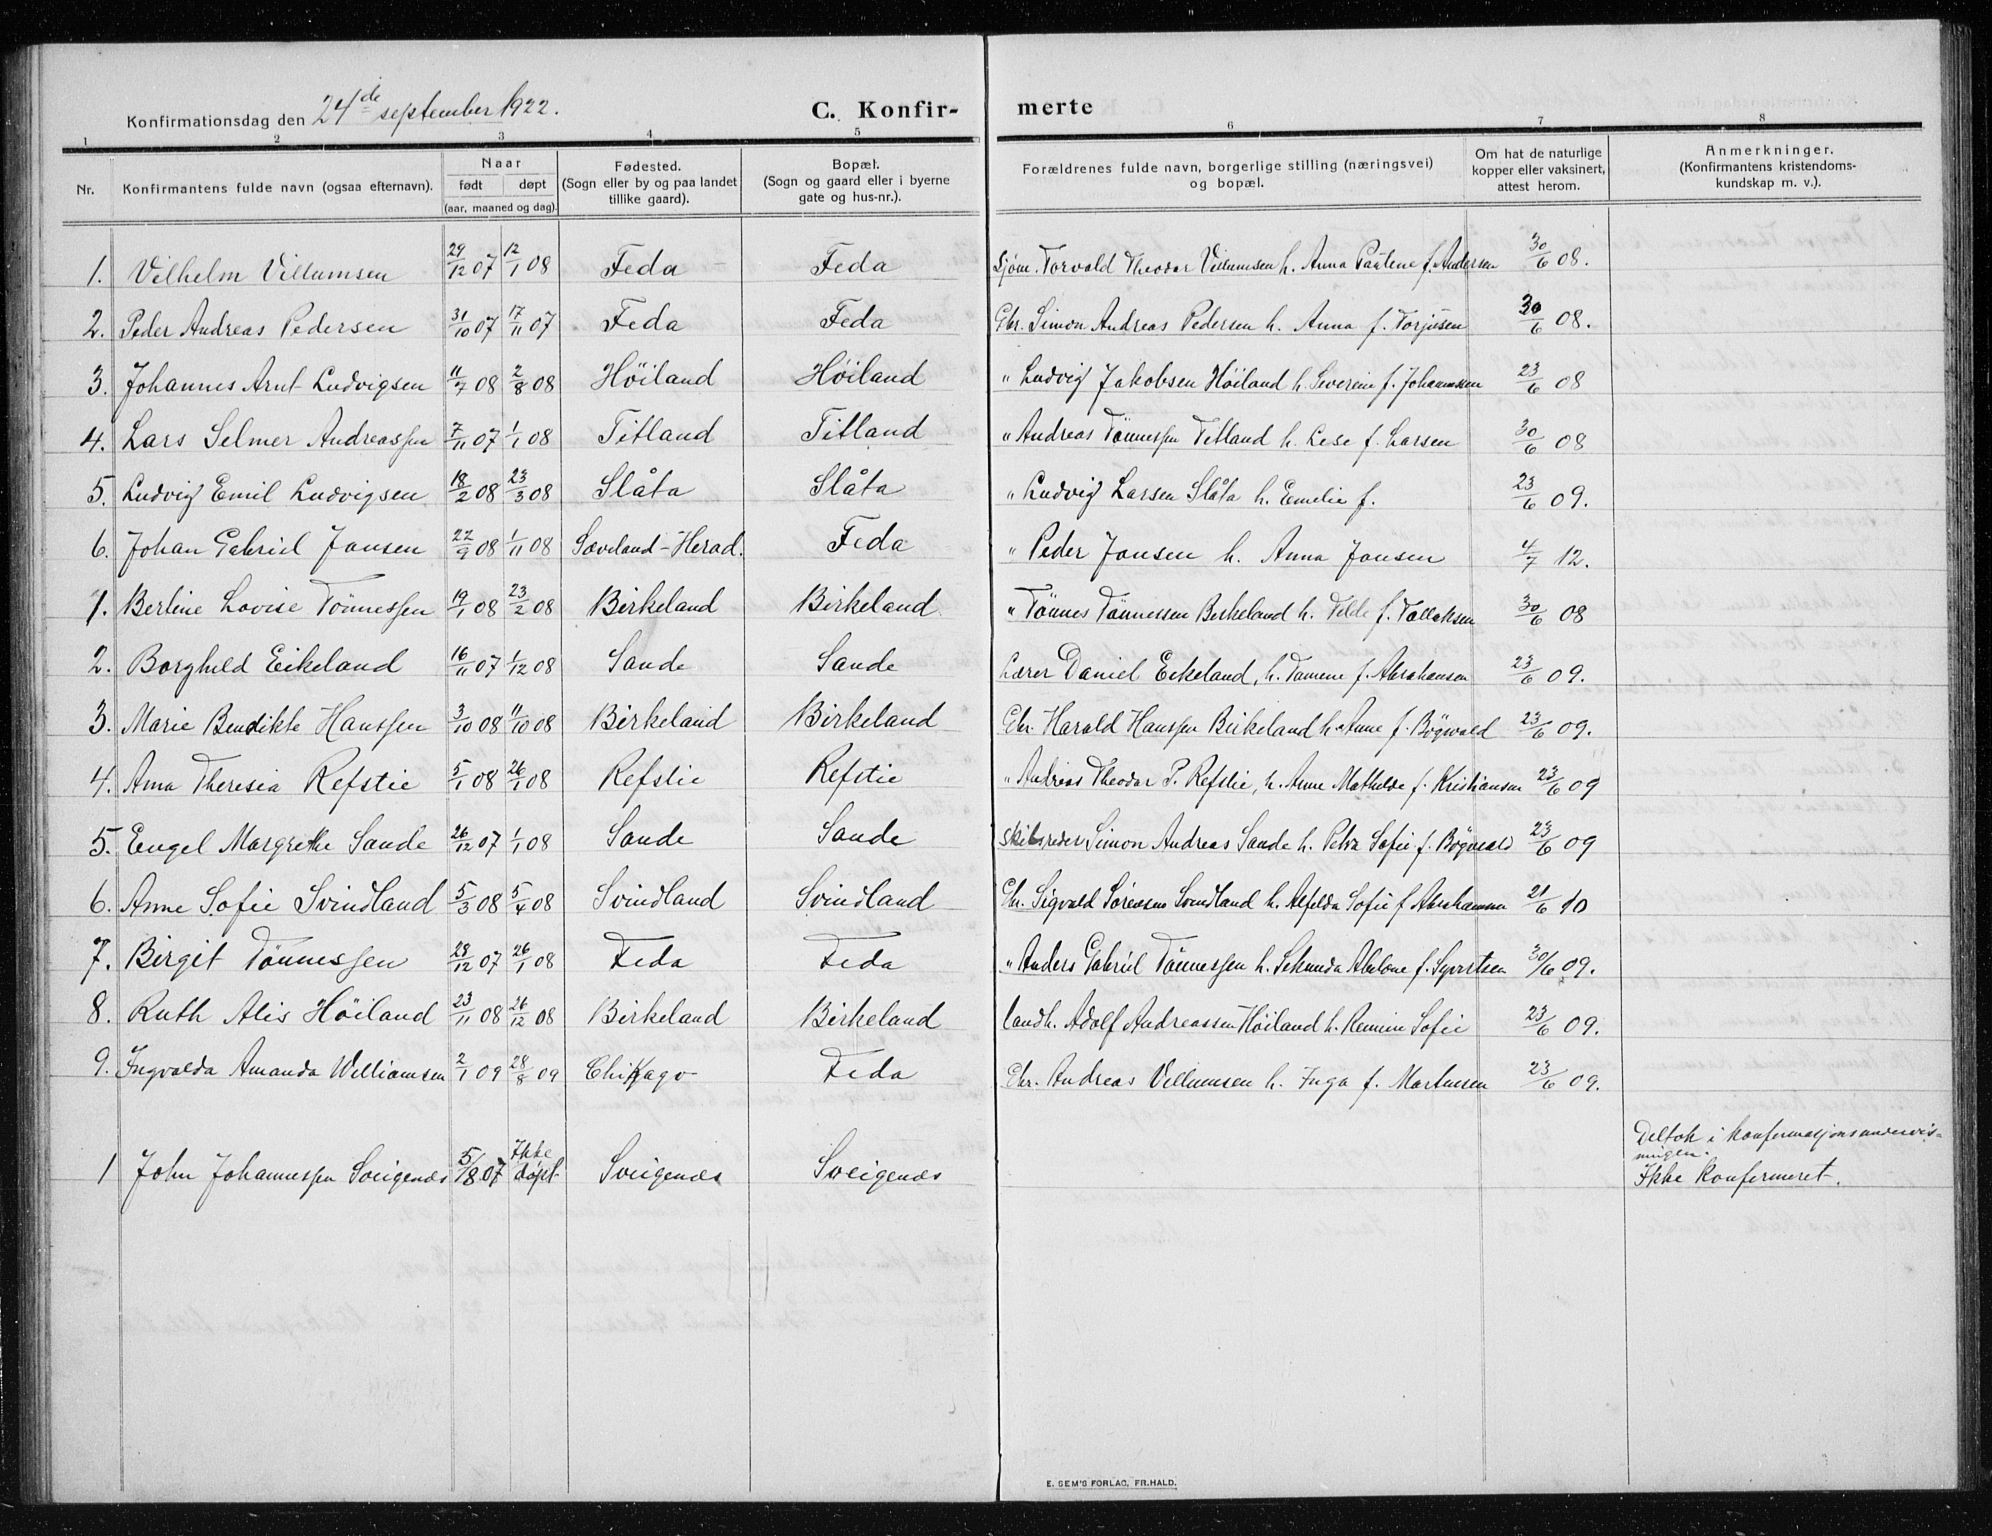 Konfirmationsdag den 24de september 1922. C. Konfir- merte
1 2 3 4 5 6 7 8
Nr. Konfirmantens fulde navn (ogsaa efternavn). Naar født døpt (aar, maaned og dag). Fødested. (Sogn eller by og paa landet tillike gaard). Bopæl. (Sogn og gaard eller i byerne gate og hus-nr.). Forældrenes fulde navn, borgerlige stilling (næringsvei) og bopæl. Om hat de naturlige kopper eller vaksinert, attest herom. Anmerkninger. (Konfirmantens kristendoms- kundskap m. v.).
1. Vilhelm Villumsen 29/12 07 12/1 08 Feda Feda Sjøm. Torvald Theodor Villumsen h. Anna Pauline f. Andersen 30/6 08.
2. Peder Andreas Pedersen 31/10 07 17/11 07 Feda Feda Gbr. Simon Andreas Pedersen h. Anna f. Torjusen 30/6 08.
3. Johannes Arnt Ludvigsen 11/7 08 2/8 08 Höiland Höiland " Ludvig Jakobsen Höiland h. Severine f. Johannessen 23/6 08
4. Lars Selmer Andreassen 7/11 07 1/1 08 Titland Titland " Andreas Tönnessen Titland h. Lise f. Larsen 30/6 08
5. Ludvig Emil Ludvigsen 18/2 08 23/3 08 Slåta Slåta " Ludvig Larsen Slåta h. Emilie f. 23/6 09.
6. Johan Gabriel Jansen 22/9 08 1/11 08 Soveland-Herad. Feda " Peder Jansen h. Anna Jansen 4/7 12.
1. Berline Lovise Tönnessen 19/1 08 23/2 08 Birkeland Birkeland " Tönnes Tönnessen Birkeland h. Tilde f. Tallaksen 30/6 08
2. Borghild Eikeland 16/11 07 1/12 08 Sande Sande Lærer Daniel Eikeland, h. Tamine f. Abrahamsen 23/6 09.
3. Marie Bendikte Hanssen 3/10 08 11/10 08 Birkeland Birkeland Gbr. Harald Hanssen Birkeland h. Anne f. Bögwald 23/6 09.
4. Anna Theresia Refstie 5/1 08 26/1 08 Refstie Refstie " Andreas Theodor P. Refstie, h. Anne Mathilde f. Kristiansen 23/6 09
5. Engel Margrethe Sande 26/12 07 1/1 08 Sande Sande Skibsreder Simon Andreas Sande h. Petra Sofie f. Bögwald 23/6 09
6. Anne Sofie Svindland 5/3 08 5/4 08 Svindland Svindland Gbr. Sigvald Sörensen Svindland h. Alfilda Sofie f. Abrahamsen 21/6 10
7. Birgit Tönnessen 28/12 07 26/1 08 Feda Feda " Anders Gabriel Tönnessen h. Sekunda Abelone f. Syvertsen 30/6 09.
8. Ruth Alis Höiland 23/11 08 26/12 08 Birkeland Birkeland Landh. Adolf Andreassen Höiland h. Sofie 23/6 09.
9. Ingvalda Amanda Williamsen 2/1 09 28/8 09 Chikago Feda Gbr. Andreas Villumsen h. Inga f. Martinsen 23/6 09.
1 John Johannessen Sveigenæs 5/8 07 Ikke döpt Sveigenæs Sveigenæs Deltok i konfirmasjonsundervis- ningen.
Ikke konfirmeret.
E. SEM'S FORLAG, FR.HALD.